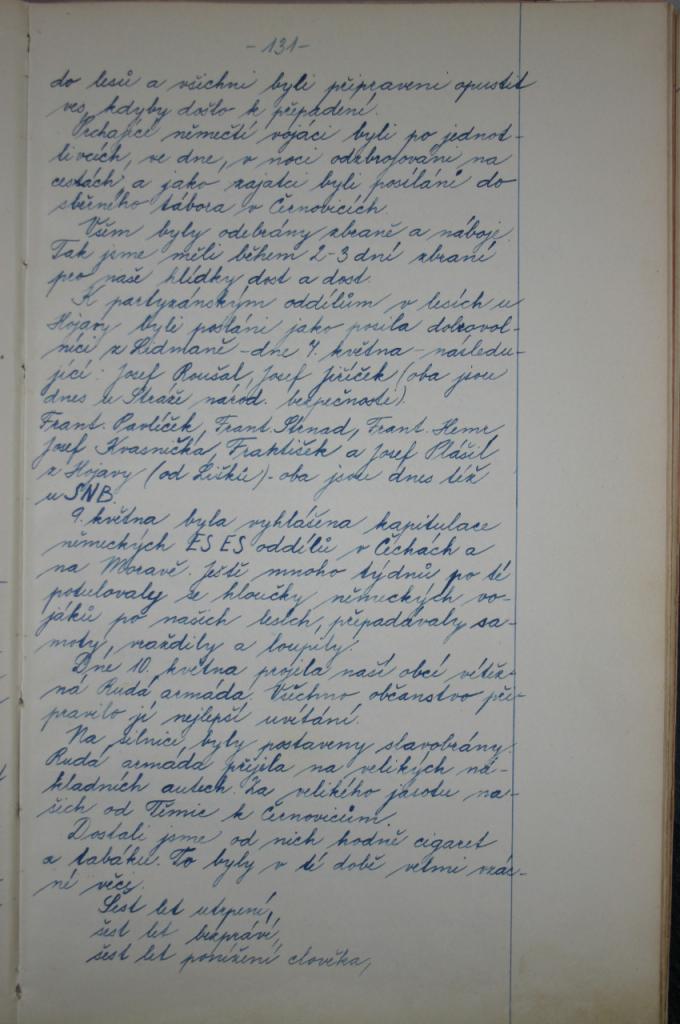 - 131 -
do lesů a všichni byli připraveni opustit
ves, kdyby došlo k přepadení.
Prchající němečtí vojáci byli po jednot-
livcích, ve dne, v noci odzbrojováni na
cestách a jako zajatci byli posíláni do
sběrného tábora v Černovicích.
Všem byly odebrány zbraně a náboje.
Tak jsme měli během 2-3 dní zbraní
pro naše hlídky dost a dost.
K partyzánským oddílům v lesích u
Hojavy byli posláni jako posila dobrovol-
níci z Lidmaně - dne 7. května - následu-
jící: Josef Roušal, Josef Jiříček (oba jsou
dnes u Stráže národ. bezpečnosti).
Frant. Pavlíček, Frant. Strnad, Frant. Hemr,
Josef Kvasnička, Fraktišek a Josef Plášil
z Hojavy (od Lišků) - oba jsou dnes též
u SNB.
9. května byla vyhlášena kapitulace
německých ES ES oddílů v Čechách a
na Moravě. Ještě mnoho týdnů po té
potulovaly se hloučky německých vo-
jáků po našich lesích, přepadávaly sa-
moty, vraždily a loupily.
Dne 10. května projela naší obcí vítěz-
ná Rudá armáda. Všechno občanstvo při-
pravilo jí nejlepší uvítání.
Na silnici byly postaveny slavobrány.
Rudá armáda přijela na velikých ná-
kladních autech. Za velikého jásotu na-
šich od Těmic k Černovicům.
Dostali jsme od nich hodně cigaret
a tabáku. To byly v té době velmi vzác-
né věci.
Šest let utrpení,
šest let bezpráví,
šest let ponížení člověka,